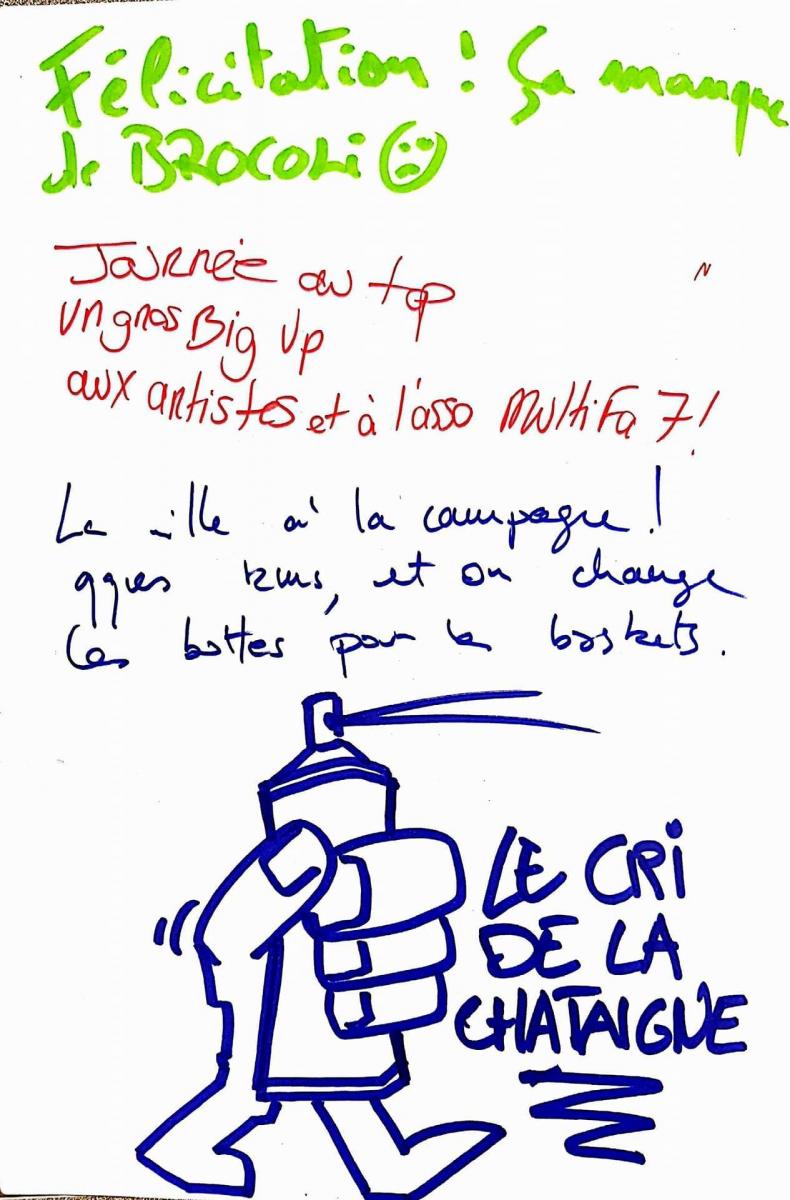 Félicitation ! Ça manque
de BROCOLI
Journée au top
un gros Big Up
aux artistes et à l'asso MultiFa 7!
La ville à la campagne !
qques kms, et on change
les bottes pour les baskets.
LE CRI
DE LA
CHATAIGNE